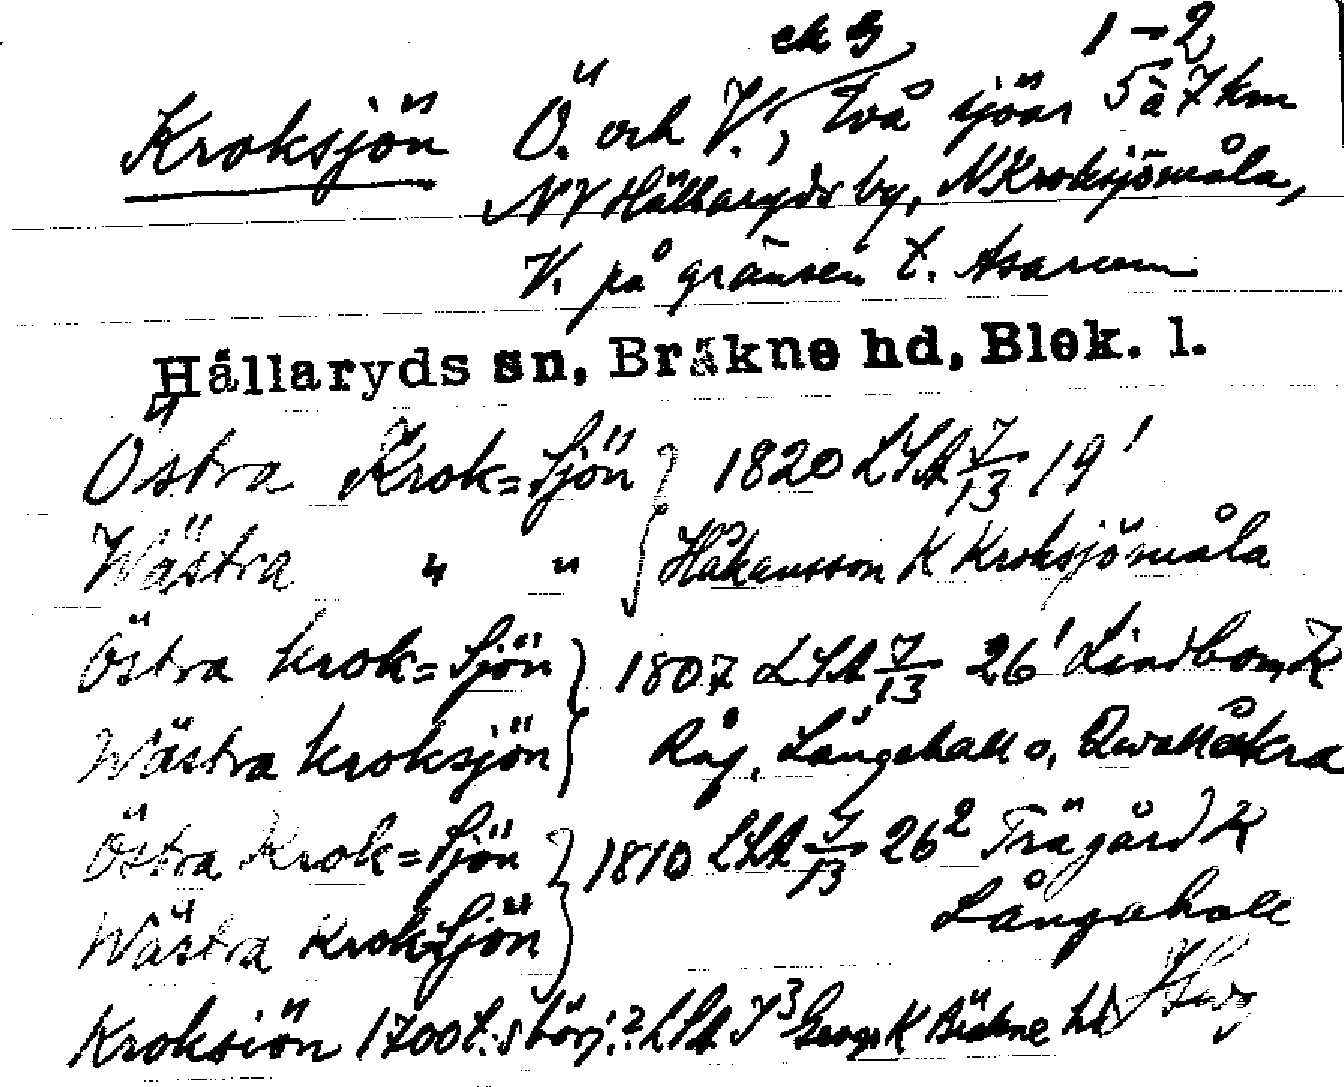 ek 3 1-2
Kroksjön Ö. och V., två sjöar 5 à 7 km
NV Hällaryds by, N Kroksjömåla,
V. på gränsen t. Asarum
Hällaryds sn, Bräkne hd, Blek. l.
Östra Krok=Sjön } 1820 LSA 7/13 19¹
Wästra " " } Håkansson K Kroksjömåla
Östra Krok=Sjön } 1807 LSA 7/13 26¹ Lindbom K
Wästra Kroksjön } Råg, Långehall o. Qvallåkra
Östra Krok=Sjön } 1810 LSA 7/13 26² Trägård K
Wästra Krok=Sjön } Långahall
Kroksiön 1700t:s börj.? LSA 7³ Geogr K Bräkne hd